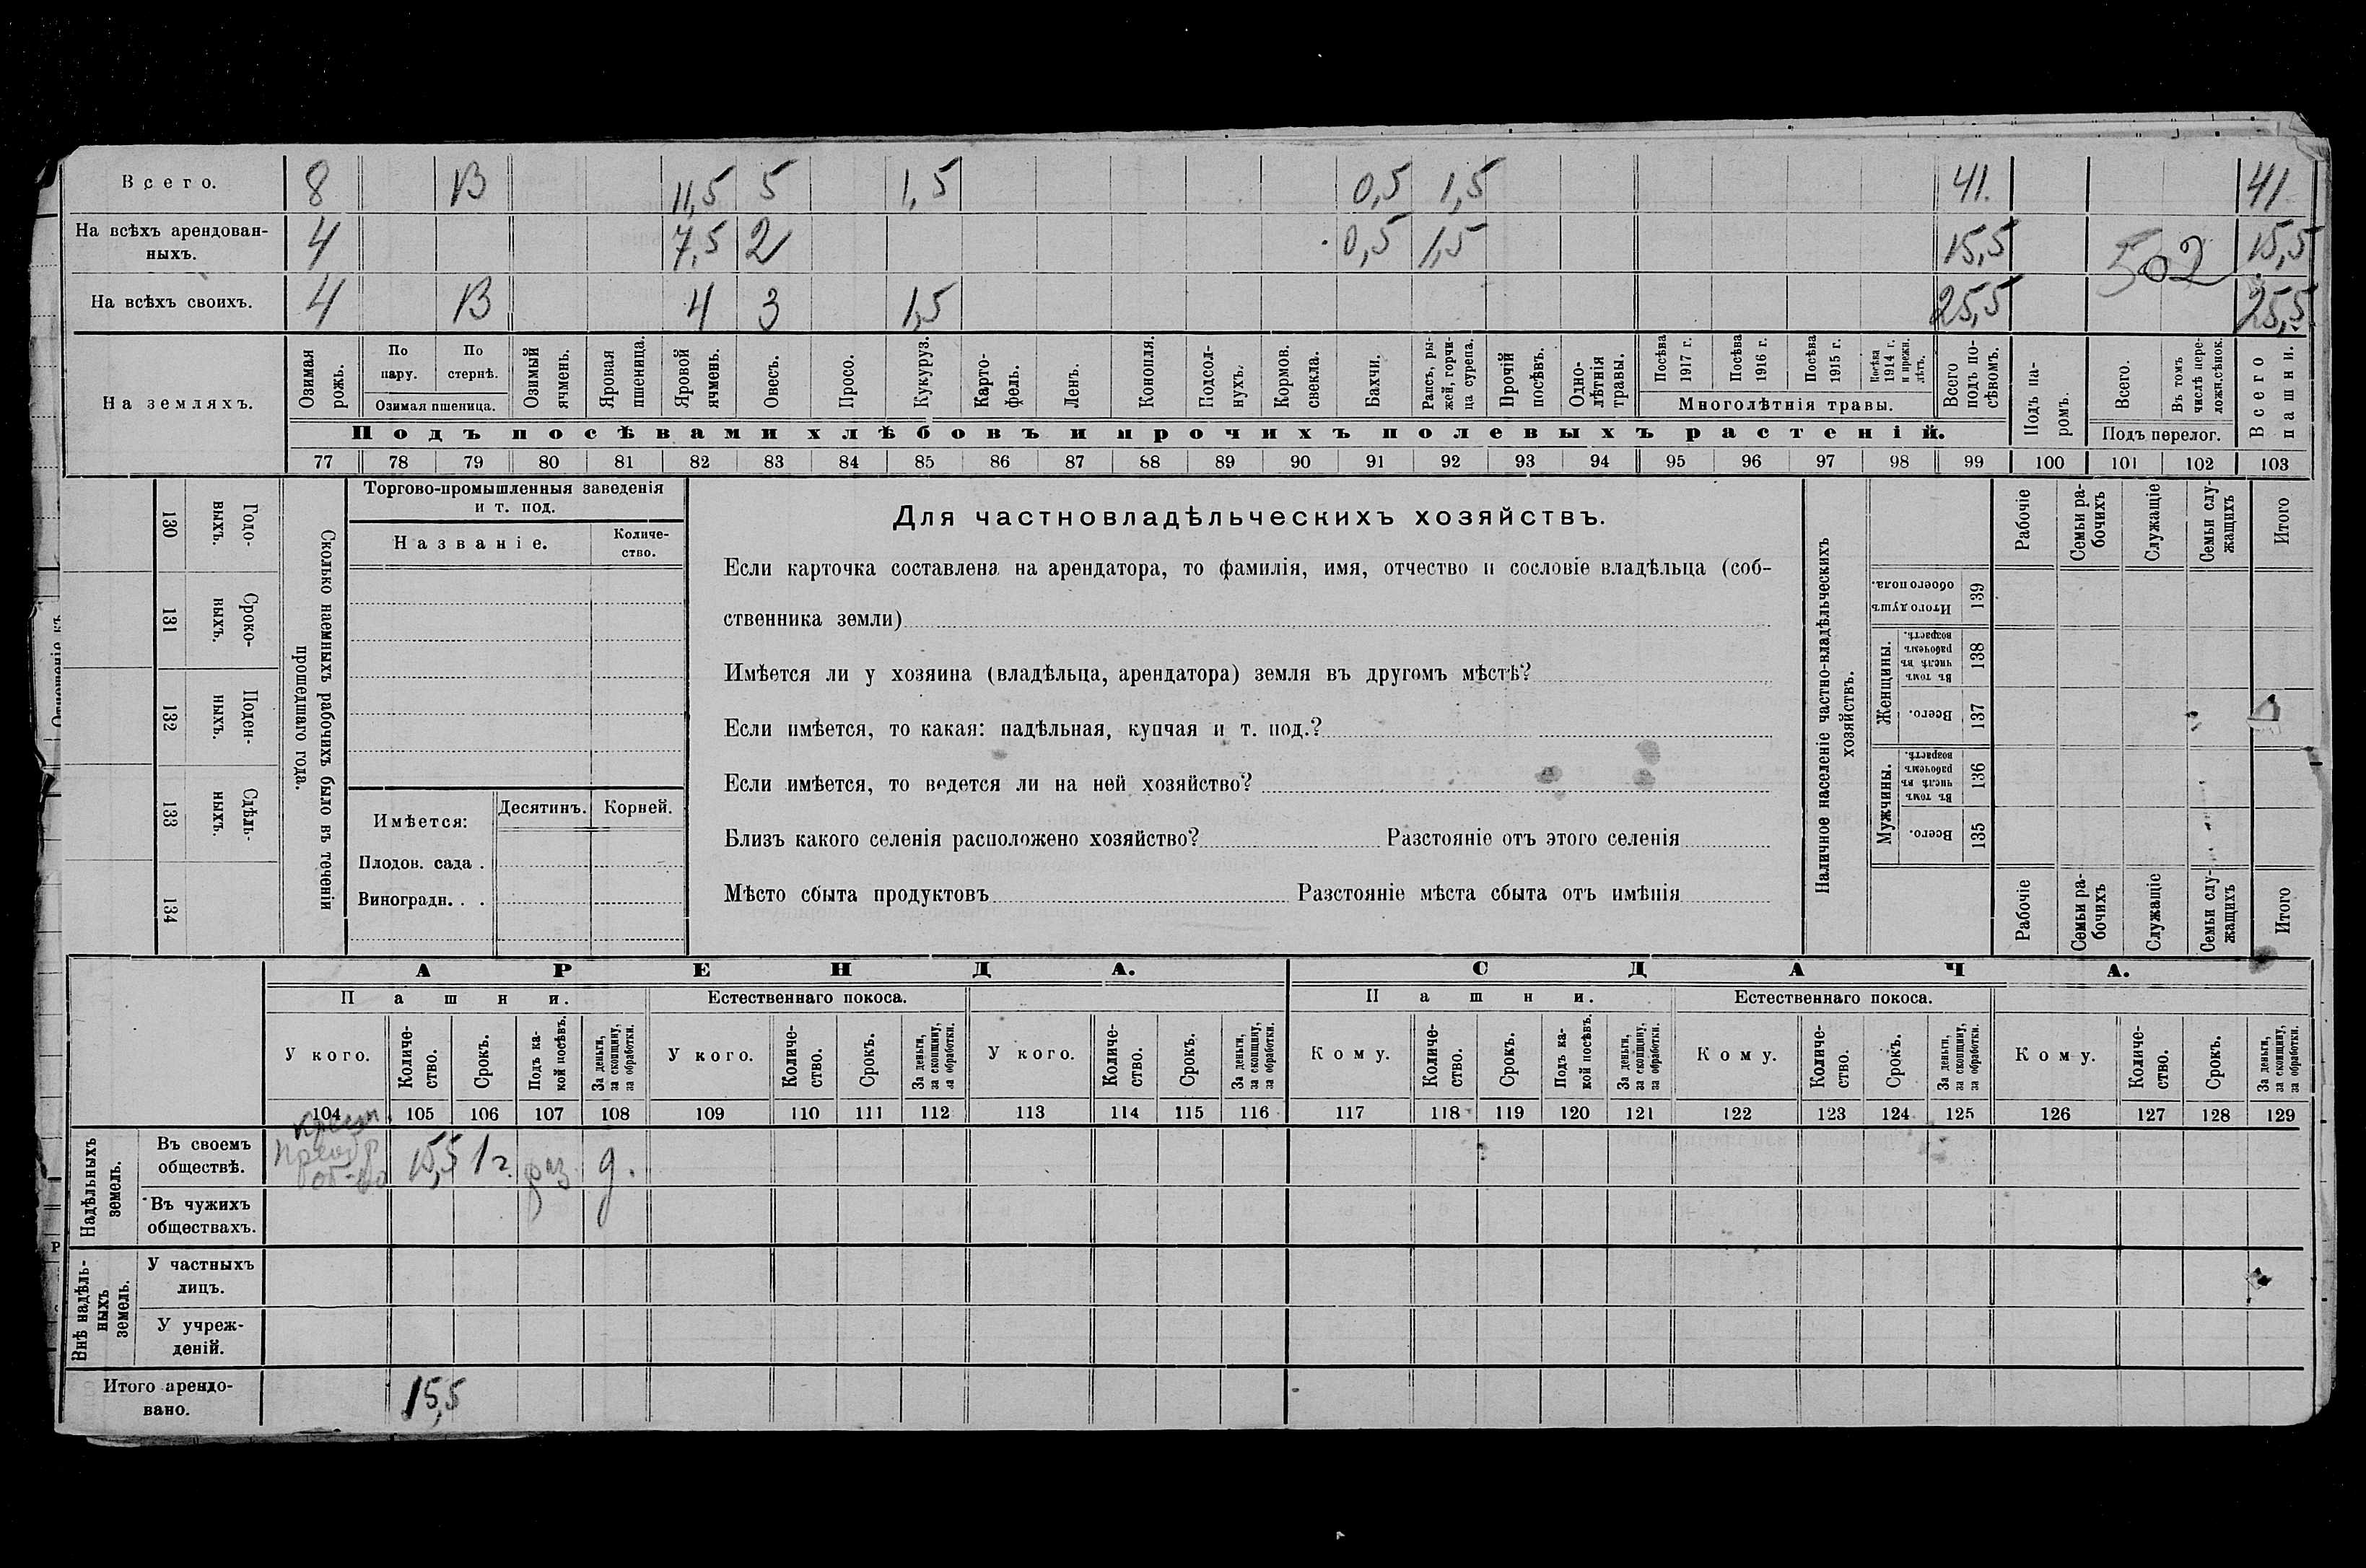 Всего. 8 13 11,5 5 1,5 0,5 1,5 41. 41
На всѣхъ арендован-
ныхъ. 4 7,5 2 0,5 1,5 15,5 502 15,5
На всѣхъ своихъ. 4 13 4 3 1,5 25,5 25,5
На земляхъ.
Озимая рожь.
По пару.
По стернѣ.
Озимая пшеница.
Озимый ячмень.
Яровая пшеница.
Яровой ячмень.
Овесъ.
Просо.
Кукуруз.
Карто-
фель.
Ленъ.
Конопля.
Подсол-
нухъ.
Кормов. свекла.
Бахчи.
Рапсъ, ры-
жей, горчи-
ца сурепа.
Прочій посѣвъ.
Одно-
лѣтнія травы.
Посѣва 1917 г.
Посѣва 1916 г.
Посѣва 1915 г.
Посѣва 1914 г. и прежн. лѣтъ.
Многолѣтнія травы.
Всего подъ по-
сѣвомъ.
Подъ па-
ромъ.
Всего.
Въ томъ числѣ пере-
ложн.сѣнок.
Подъ перелог.
Всего пашни.
Подъ посѣвами хлѣбовъ и прочихъ полевыхъ растеній.
77 78 79 80 81 82 83 84 85 86 87 88 89 90 91 92 93 94 95 96 97 98 99 100 101 102 103
130 Годо-
выхъ.
131 Сроко-
ныхъ.
132 Поден-
ныхъ.
133 Сдѣль-
ныхъ.
134
Сколько наемныхъ рабочихъ было въ теченіи
прошедшаго года.
Торгово-промышленныя заведенія
и т. под.
Названіе.
Количе-
ство.
Имѣется:
Десятинъ.
Корней.
Плодов. сада .
Виноградн. . .
Для частновладѣльческихъ хозяйствъ.
Если карточка составлена на арендатора, то фамилія, имя, отчество и сословіе владѣльца (соб-
ственника земли)
Имѣется ли у хозяина (владѣльца, арендатора) земля въ другомъ мѣстѣ?
Если имѣется, то какая: надѣльная, купчая и т. под.?
Если имѣется, то ведется ли на ней хозяйство?
Близъ какого селенія расположено хозяйство? Разстояніе отъ этого селенія
Мѣсто сбыта продуктовъ Разстояніе мѣста сбыта отъ имѣнія
Наличное населеніе частно-владѣльческихъ
хозяйствъ.
Итого душъ
обоего пола. 139
Женщины.
Въ томъ числѣ въ рабочемъ возрастѣ. 138
Всего. 137
Мужчины.
Въ томъ числѣ въ рабочемъ возрастѣ. 136
Всего. 135
Рабочіе
Семьи ра-
бочихъ
Служащіе
Семьи слу-
жащихъ
Итого
Рабочіе
Семьи ра-
бочихъ
Служащіе
Семьи слу-
жащихъ
Итого
АРЕНДА. СДАЧА.
Пашни. Естественнаго покоса. Пашни. Естественнаго покоса.
У кого.
Количе-
ство.
Срокъ.
Подъ ка-
кой посѣвъ.
За деньги,
за скопщину,
за обработки.
У кого.
Количе-
ство.
Срокъ.
За деньги,
за скопщину,
за обработки.
У кого.
Количе-
ство.
Срокъ.
За деньги,
за скопщину,
за обработки.
Кому.
Количе-
ство.
Срокъ.
Подъ ка-
кой посѣвъ.
За деньги,
за скопщину,
за обработки.
Кому.
Количе-
ство.
Срокъ.
За деньги,
за скопщину,
за обработки.
Кому.
Количе-
ство.
Срокъ.
За деньги,
за скопщину,
за обработки.
104 105 106 107 108 109 110 111 112 113 114 115 116 117 118 119 120 121 122 123 124 125 126 127 128 129
Надѣльныхъ
земель.
Въ своемъ
обществѣ. Крест. об-ва 15,5 1 г. раз д.
Въ чужихъ
обществахъ.
Внѣ надѣль-
ныхъ
земель.
У частныхъ
лицъ.
У учреж-
деній.
Итого арендо-
вано. 15,5